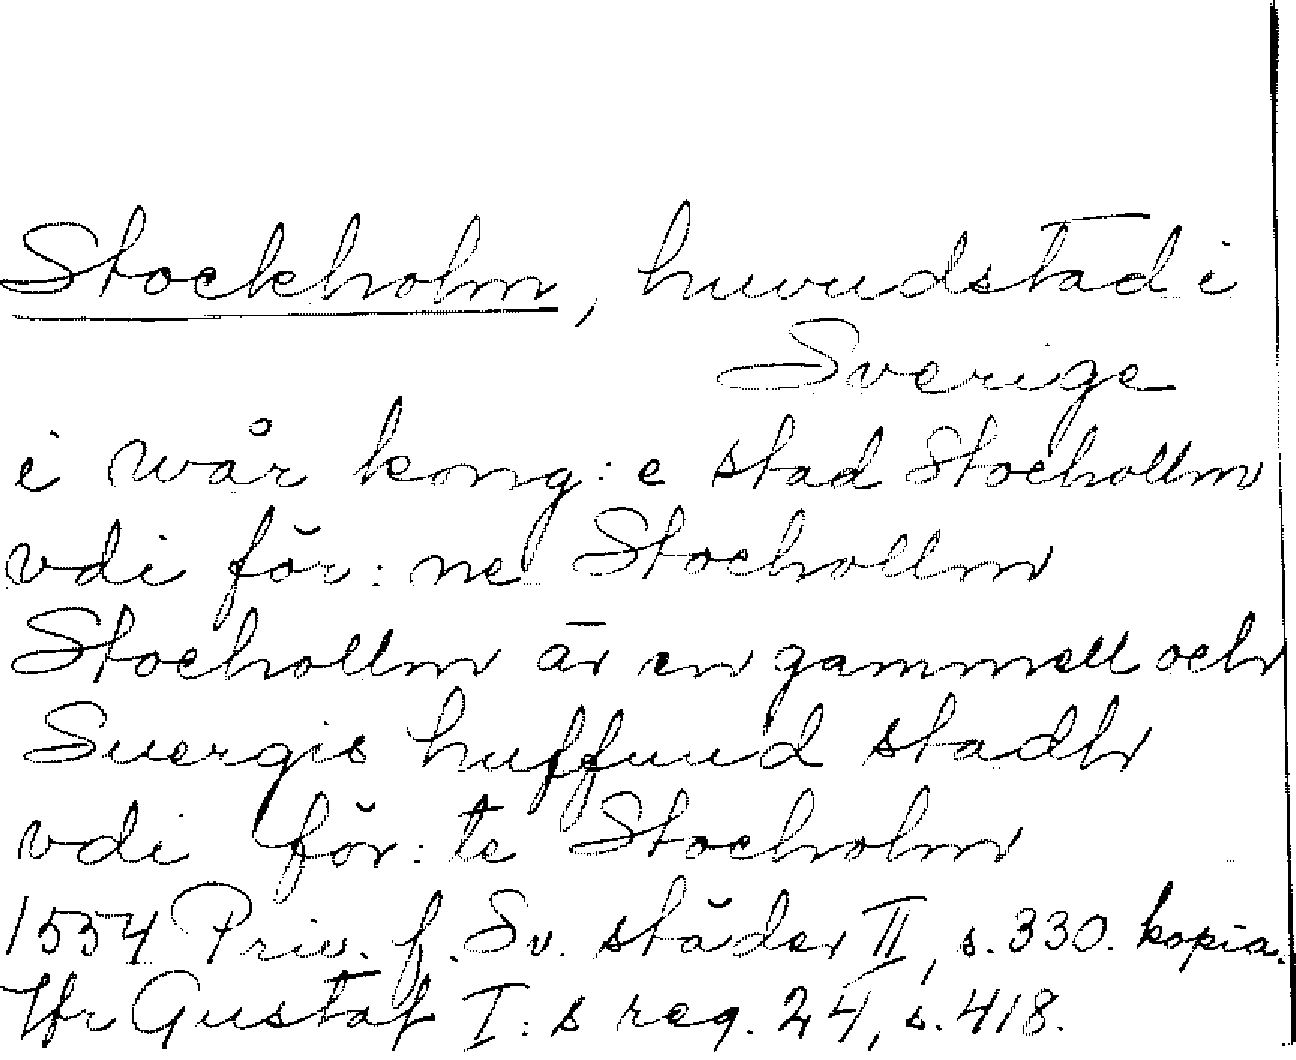 Stockholm, huvudstad i
Sverige
i wår kong:e stad Stocholm
vdi för:ne Stochollm
Stochollm är en gammell och
Suergis huffuud stadh
vdi för:te Stocholm
1554 Priv. f. Sv. städer II, s. 330. kopia.
Jfr Gustaf I:s reg. 24, s. 418.